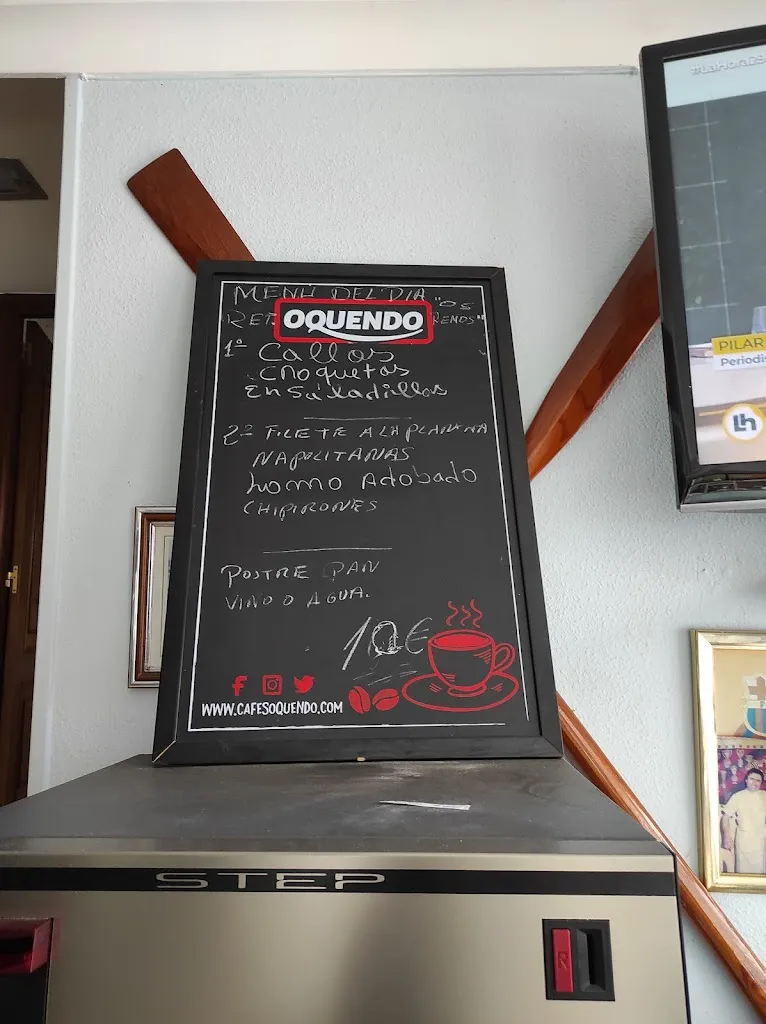 #LaHora25
MENU DEL DIA "OS
REMOS"
OQUENDO
1º Callos
Croquetas
Ensaladillas
2º FILETE A LA PLANCHA
NAPOLITANAS
Lomo Adobado
CHIPIRONES
POSTRE PAN
VINO O AGUA.
10€
WWW.CAFESOQUENDO.COM
PILAR
Periodis
Lh
STEP
R